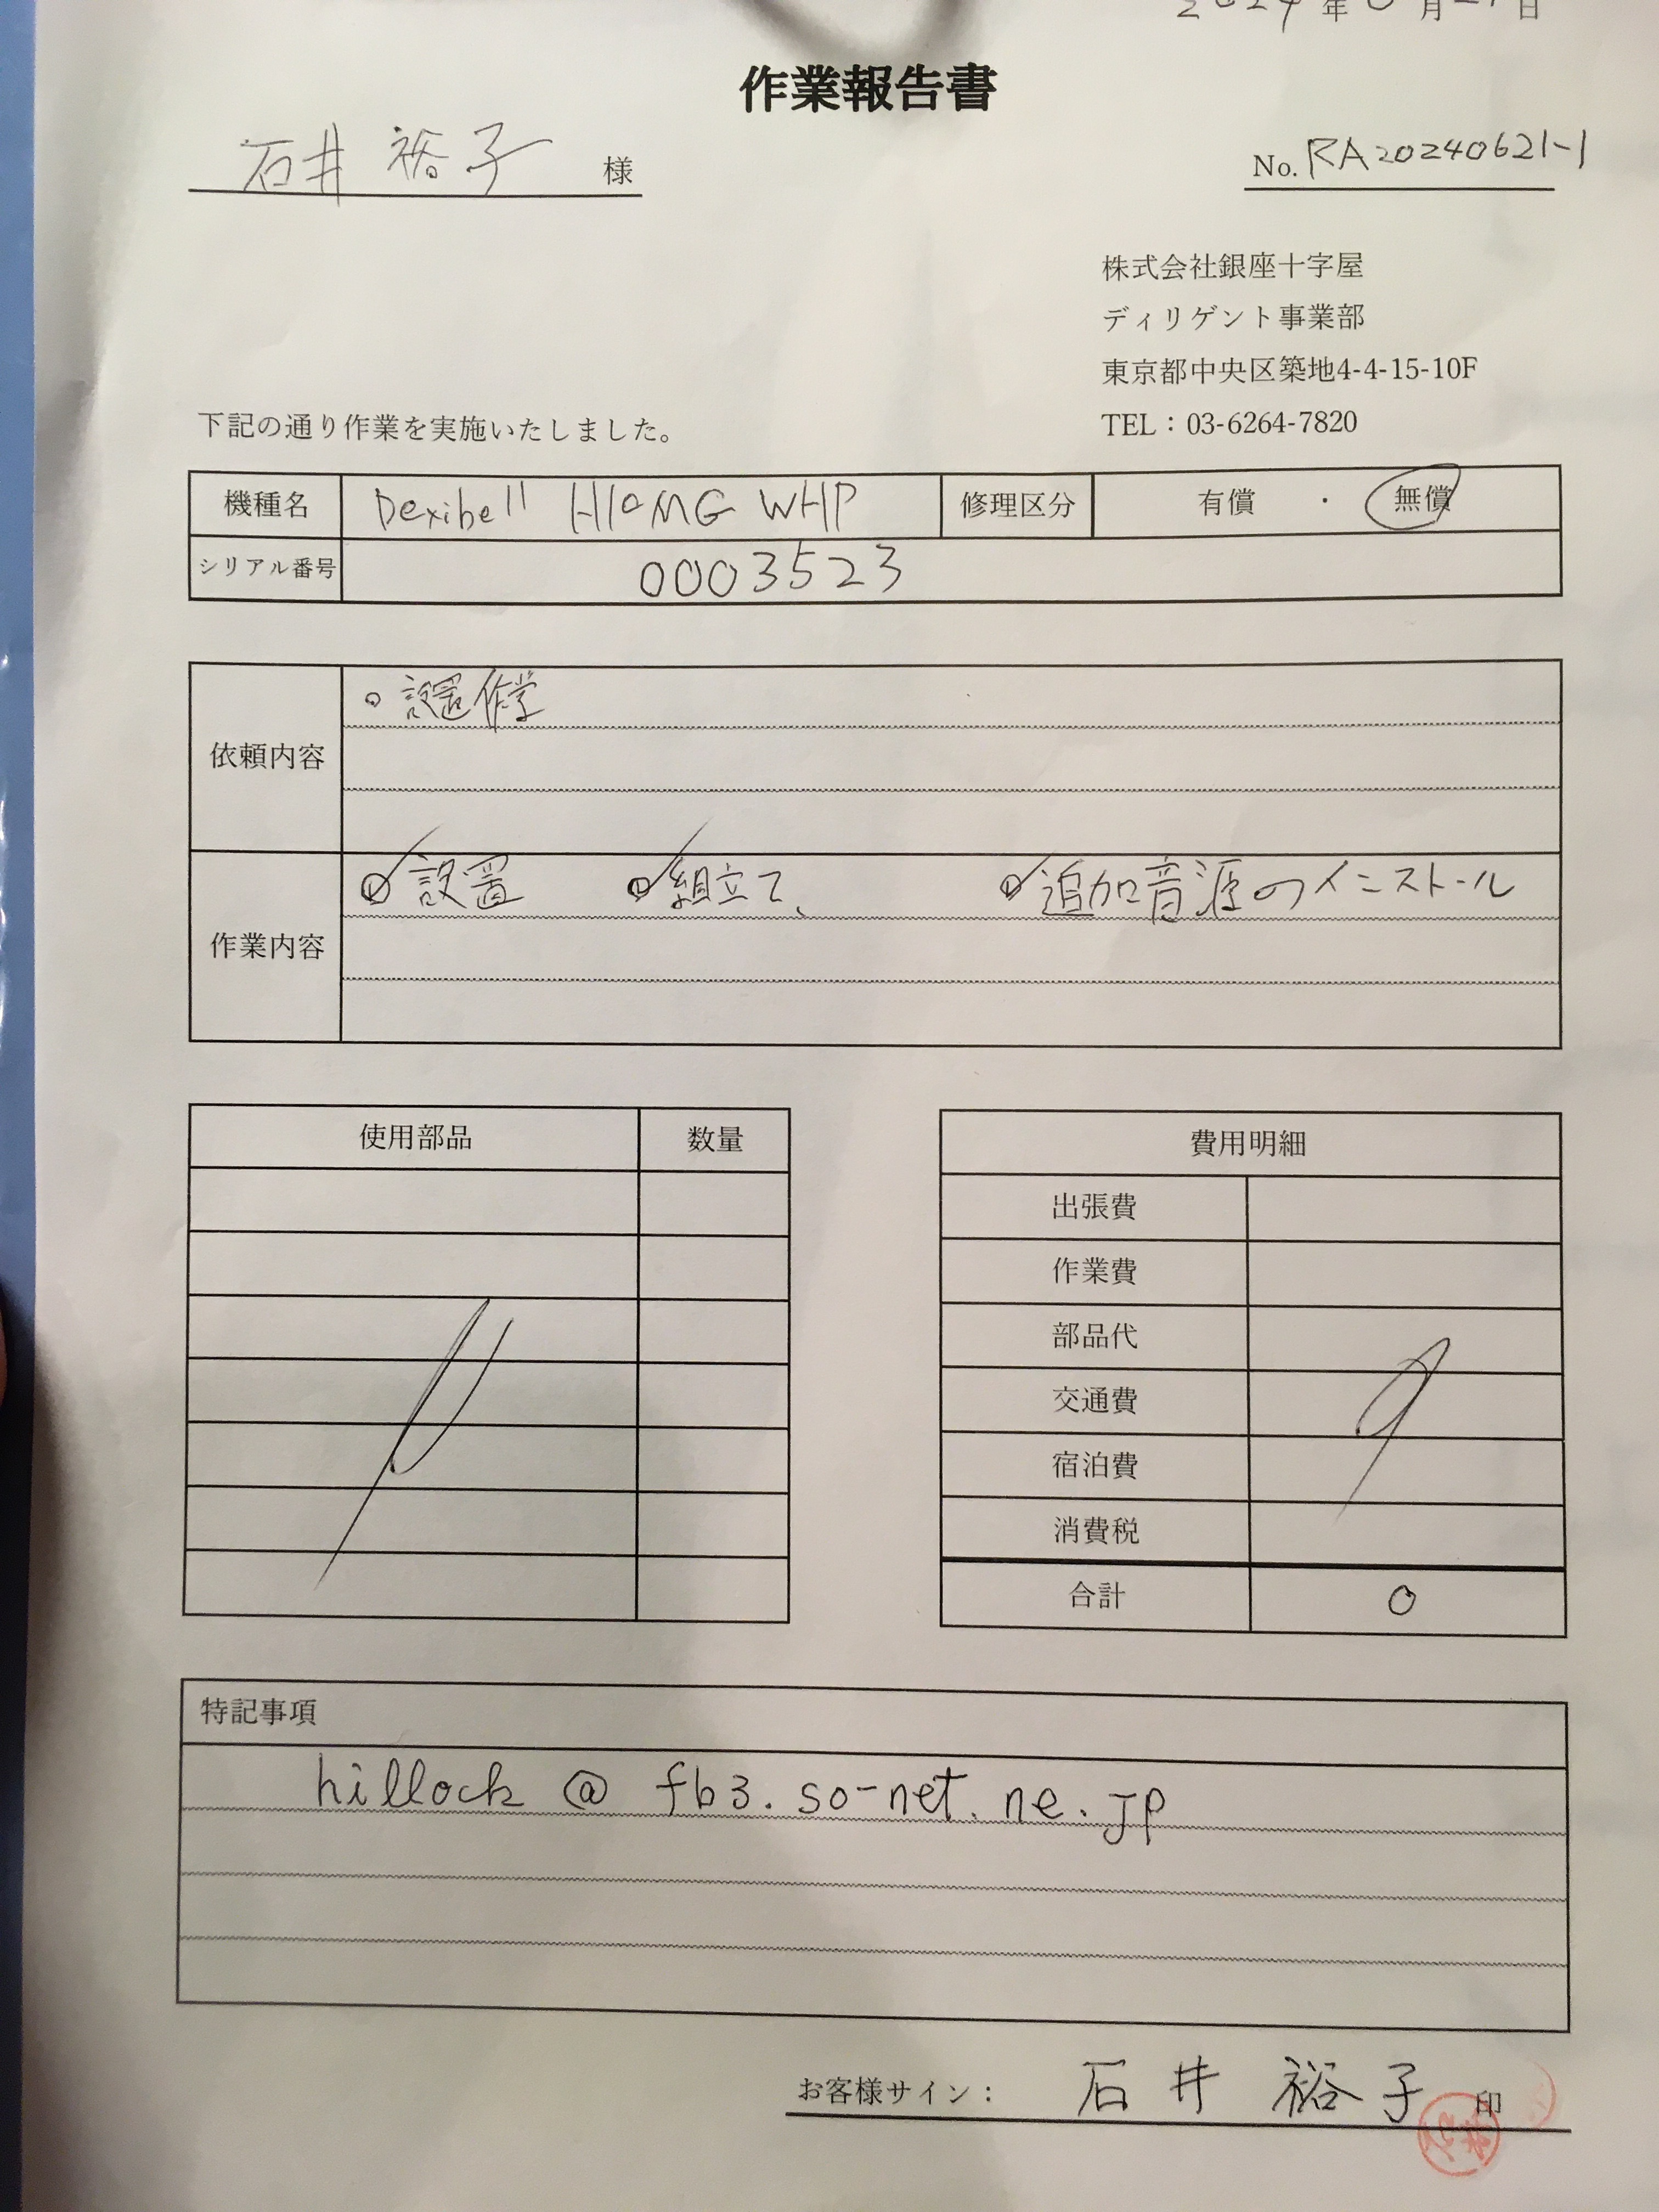 2024年6月21日
作業報告書
石井 裕子 様
No. RA20240621-1
株式会社銀座十字屋
ディリゲント事業部
東京都中央区築地4-4-15-10F
TEL：03-6264-7820
下記の通り作業を実施いたしました。
機種名 Dexibell H10MG WHP 修理区分 有償 ・ 無償
シリアル番号 0003523
依頼内容
。設置作業
作業内容
設置 組立て、 追加音源のインストール
使用部品 数量
費用明細
出張費
作業費
部品代
交通費
宿泊費
消費税
合計 0
特記事項
hillock@fb3.so-net.ne.jp
お客様サイン： 石井 裕子 印